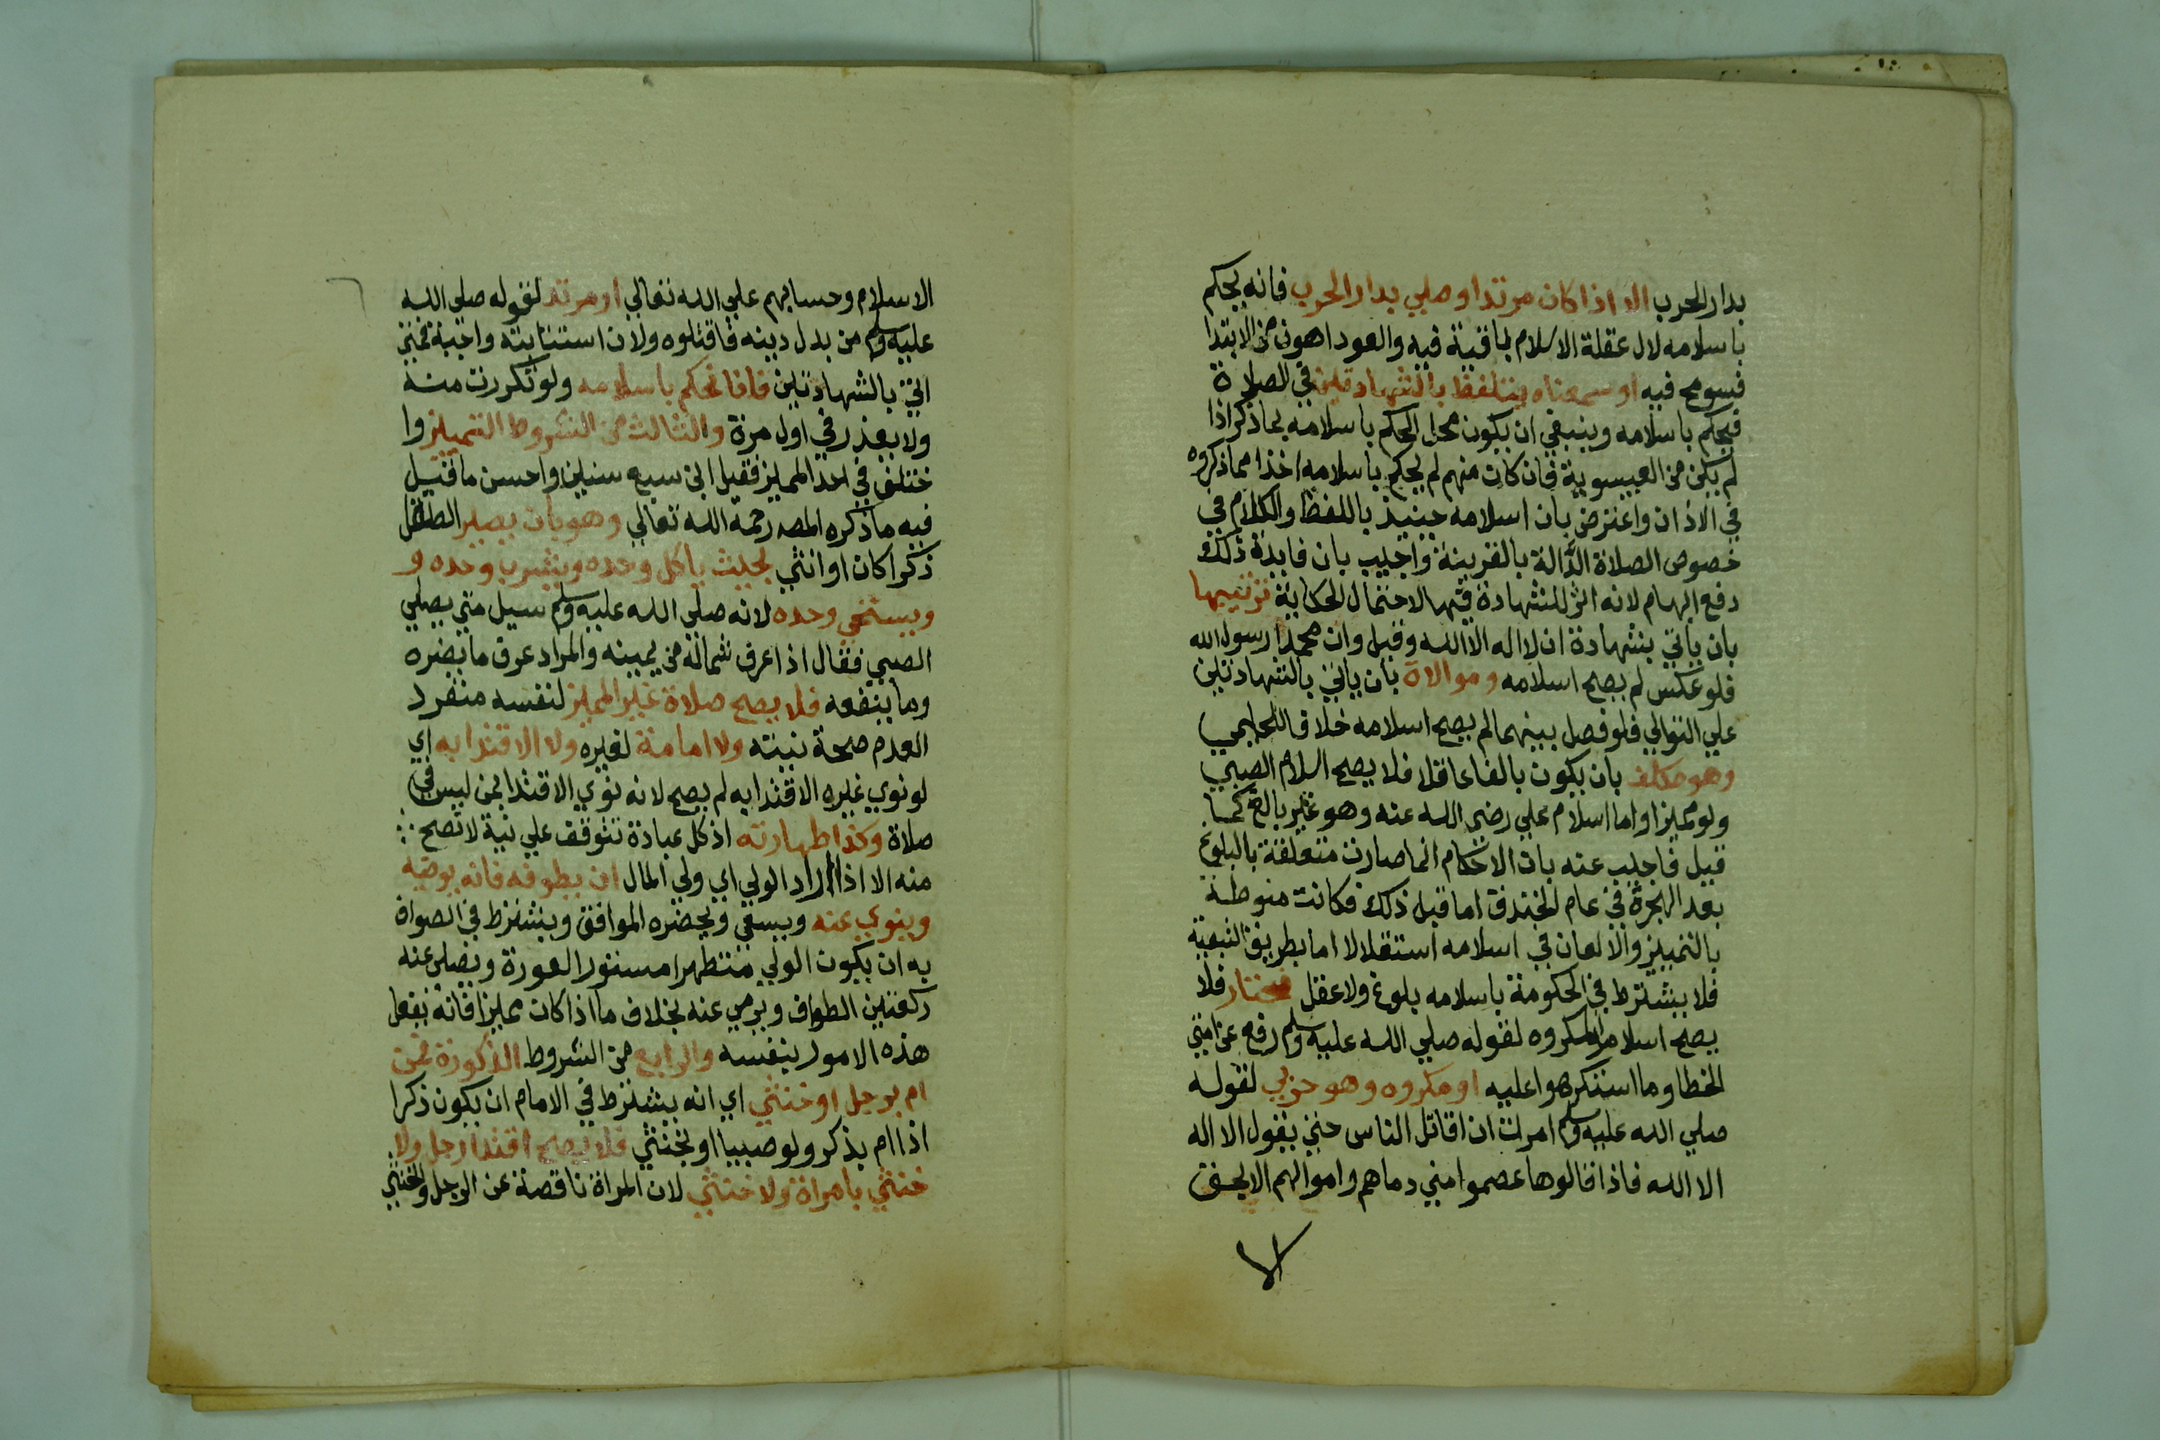 بدار الحرب الا اذا كان مرتدا وصلي بدار الحرب فانه يحكم
باسلامه لال عقلة الاسلام باقية فيه والعود اهون من الابتدا
فسومح فيه او سمعناه يتلفظ بالشهادتين في الصلاة
فيحكم باسلامه وينبغي ان يكون محل الحكم باسلامه بماذكر اذا
لم يكن من العيسوية فان كان منهم لم يحكم باسلامه اخذا مما ذكروه
في الاذان واعترض بان اسلامه حينيذ باللفظ والكلام في
خصوص الصلاة الدالة بالقرينة واجيب بان فايدة ذلك
دفع ايهام لانه اثر للشهادة فيها لاحتمال الحكاية ترتيبها
بان ياتي بشهادة ان لا اله الا الله وقبل وان محمدا رسول الله
فلو عكس لم يصح اسلامه وموالاة بان ياتي بالشهادتين
علي التوالي فلو فصل بينهما لم يصح اسلامه خلافا للحليمي
وهو مكلف بان يكون بالغا عاقلا فلا يصح اسلام الصبي
ولو مميزا واما اسلام علي رضي الله عنه وهو غير بالغ كما
قيل فاجيب عنه بان الاحكام انما صارت متعلقة بالبلوغ
بعد الهجرة في عام الخندق اما قبل ذلك فكانت منوطة
بالتمييز والالعان في اسلامه استقلالا اما بطريق التبعية
فلا يشترط في الحكومة باسلامه بلوغ ولا عقل مختار فلا
يصح اسلام المكروه لقوله صلي الله عليه وسلم رفع عن امتي
الخطا وما استكرهوا عليه او مكروه وهو حربي لقوله
صلي الله عليه وسلم امرت ان اقاتل الناس حتي يقول الا اله
الا الله فاذا قالوها عصموا مني دماهم واموالهم الا بحق
الا
الاسلام وحسابهم علي الله تعالي او مرتد لقوله صلي الله
عليه وسلم من بدل دينه فاقتلوه ولان استتابته واجبة فمتي
اتي بالشهادتين فانا نحكم باسلامه ولو تكررت منه
ولا يعذر في اول مرة والثالث من الشروط التمييز وا
ختلف في احد المميز فقيل ابن سبع سنين واحسن ما قيل
فيه ما ذكره المصه رحمه الله تعالي وهو بان يصير الطفل
ذكرا كان او انثي بحيث ياكل وحده ويشرب وحده و
ويستنجي وحده لانه صلي الله عليه وسلم سيل متي يصلي
الصبي فقال اذا عرف شماله من يمينه والمراد عرف ما يضره
وما ينفعه فلا يصح صلاة غير المميز لنفسه منفرد
العدم صحة نيته ولا امامة لغيره ولا الاقتدا به اي
لو نوي غيره الاقتدا به لم يصح لانه نوي الاقتدا بمن ليس في
صلاة وكذا طهارته اذ كل عبادة تتوقف علي نية لا تصح
منه الا اذا اراد الولي اي ولي المال ان يطوفه فانه يوضيه
وينوي عنه ويسعي ويحضره الموافق ويشترط في الصواف
به ان يكون الولي متطهرا مستور العورة ويصلي عنه
ركعتين الطواف ويرمي عنه بخلاف ما اذا كان مميزا فانه يفعل
هذه الامور بنفسه والرابع من الشروط الذكورة فمن
ام برجل او خنثي اي انه يشترط في الامام ان يكون ذكرا
اذا ام بذكر ولو صبيا او بخنثي فلا يصح اقتدا رجل ولا
خنثي بامراة ولا خنثي لان المراة ناقصة عن الرجل والخنثي